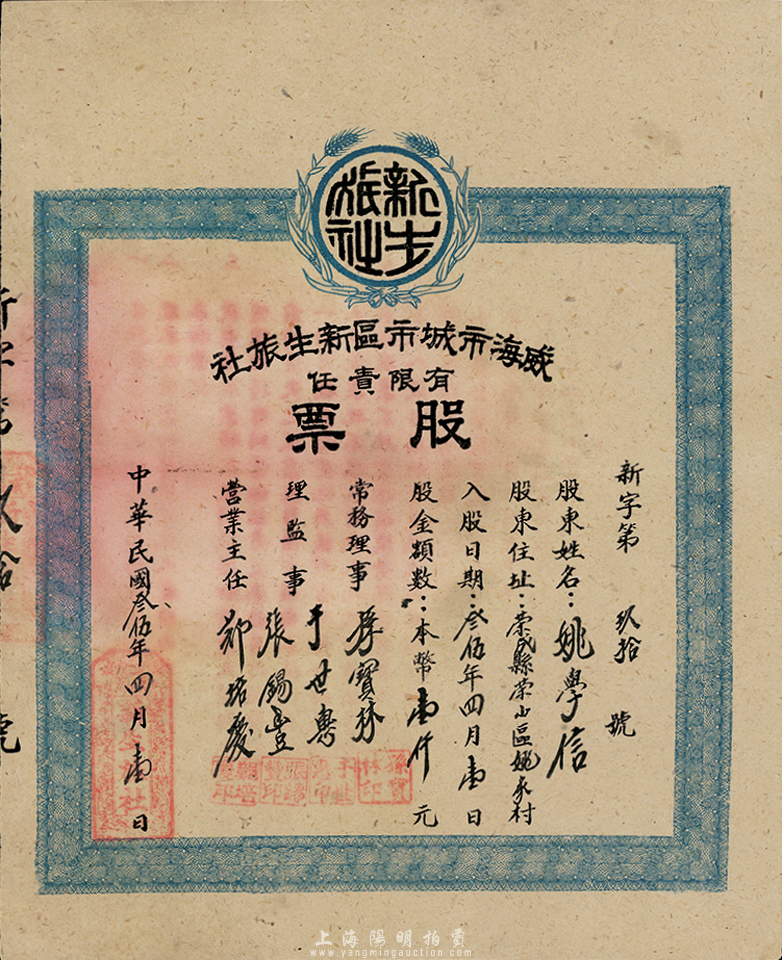 新生旅社
威海市城市區新生旅社
有限責任
股票
新字第 玖拾 號
股東姓名：姚學信
股東住址：榮成縣榮山區姚家村
入股日期：叁伍年四月壹日
股金額數：本幣壹仟元
常務理事 孫寶林
理監事 于世惠
張錫壹
營業主任 鄒培慶
中華民國叁伍年四月壹日
孫寶林印
上海陽明拍賣
www.yangmingauction.com